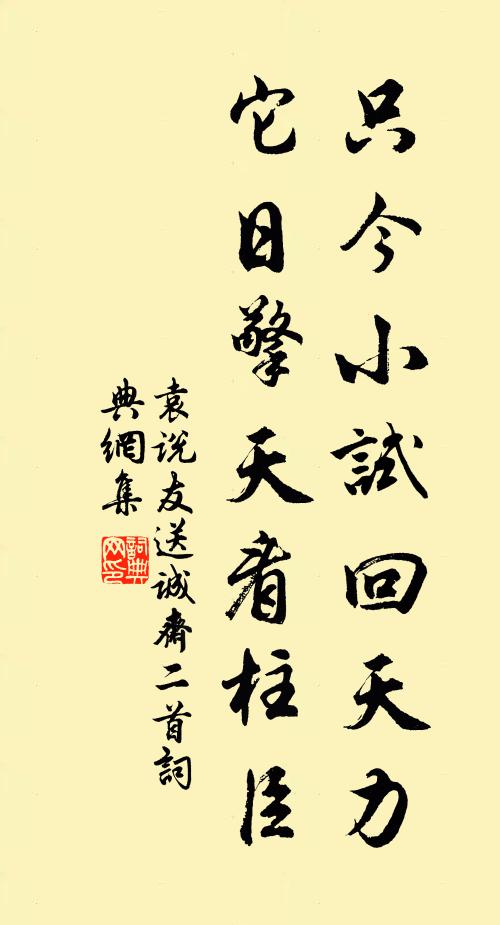 只今小試回天力
它日擎天看柱臣
袁说友送诚斋二首詞
典網集
詞典网印